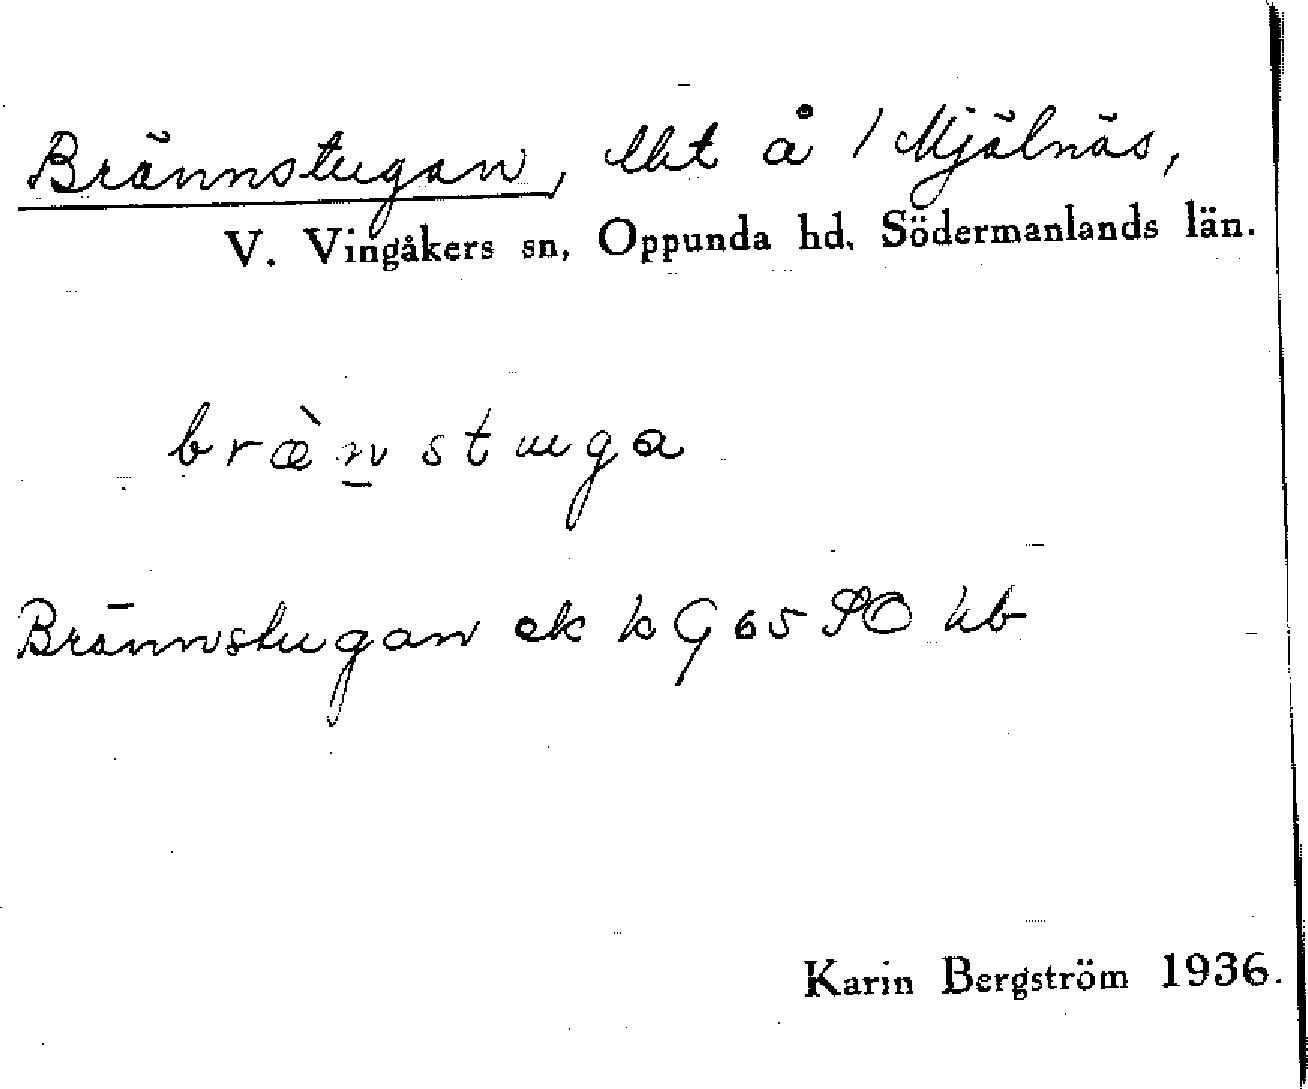 Brännstugan, lht å 1 Mjälnäs,
V. Vingåkers sn, Oppunda hd, Södermanlands län.
bræ̀n̲stuga
Brännstugan ek k G 65 SO
Karin Bergström 1936.